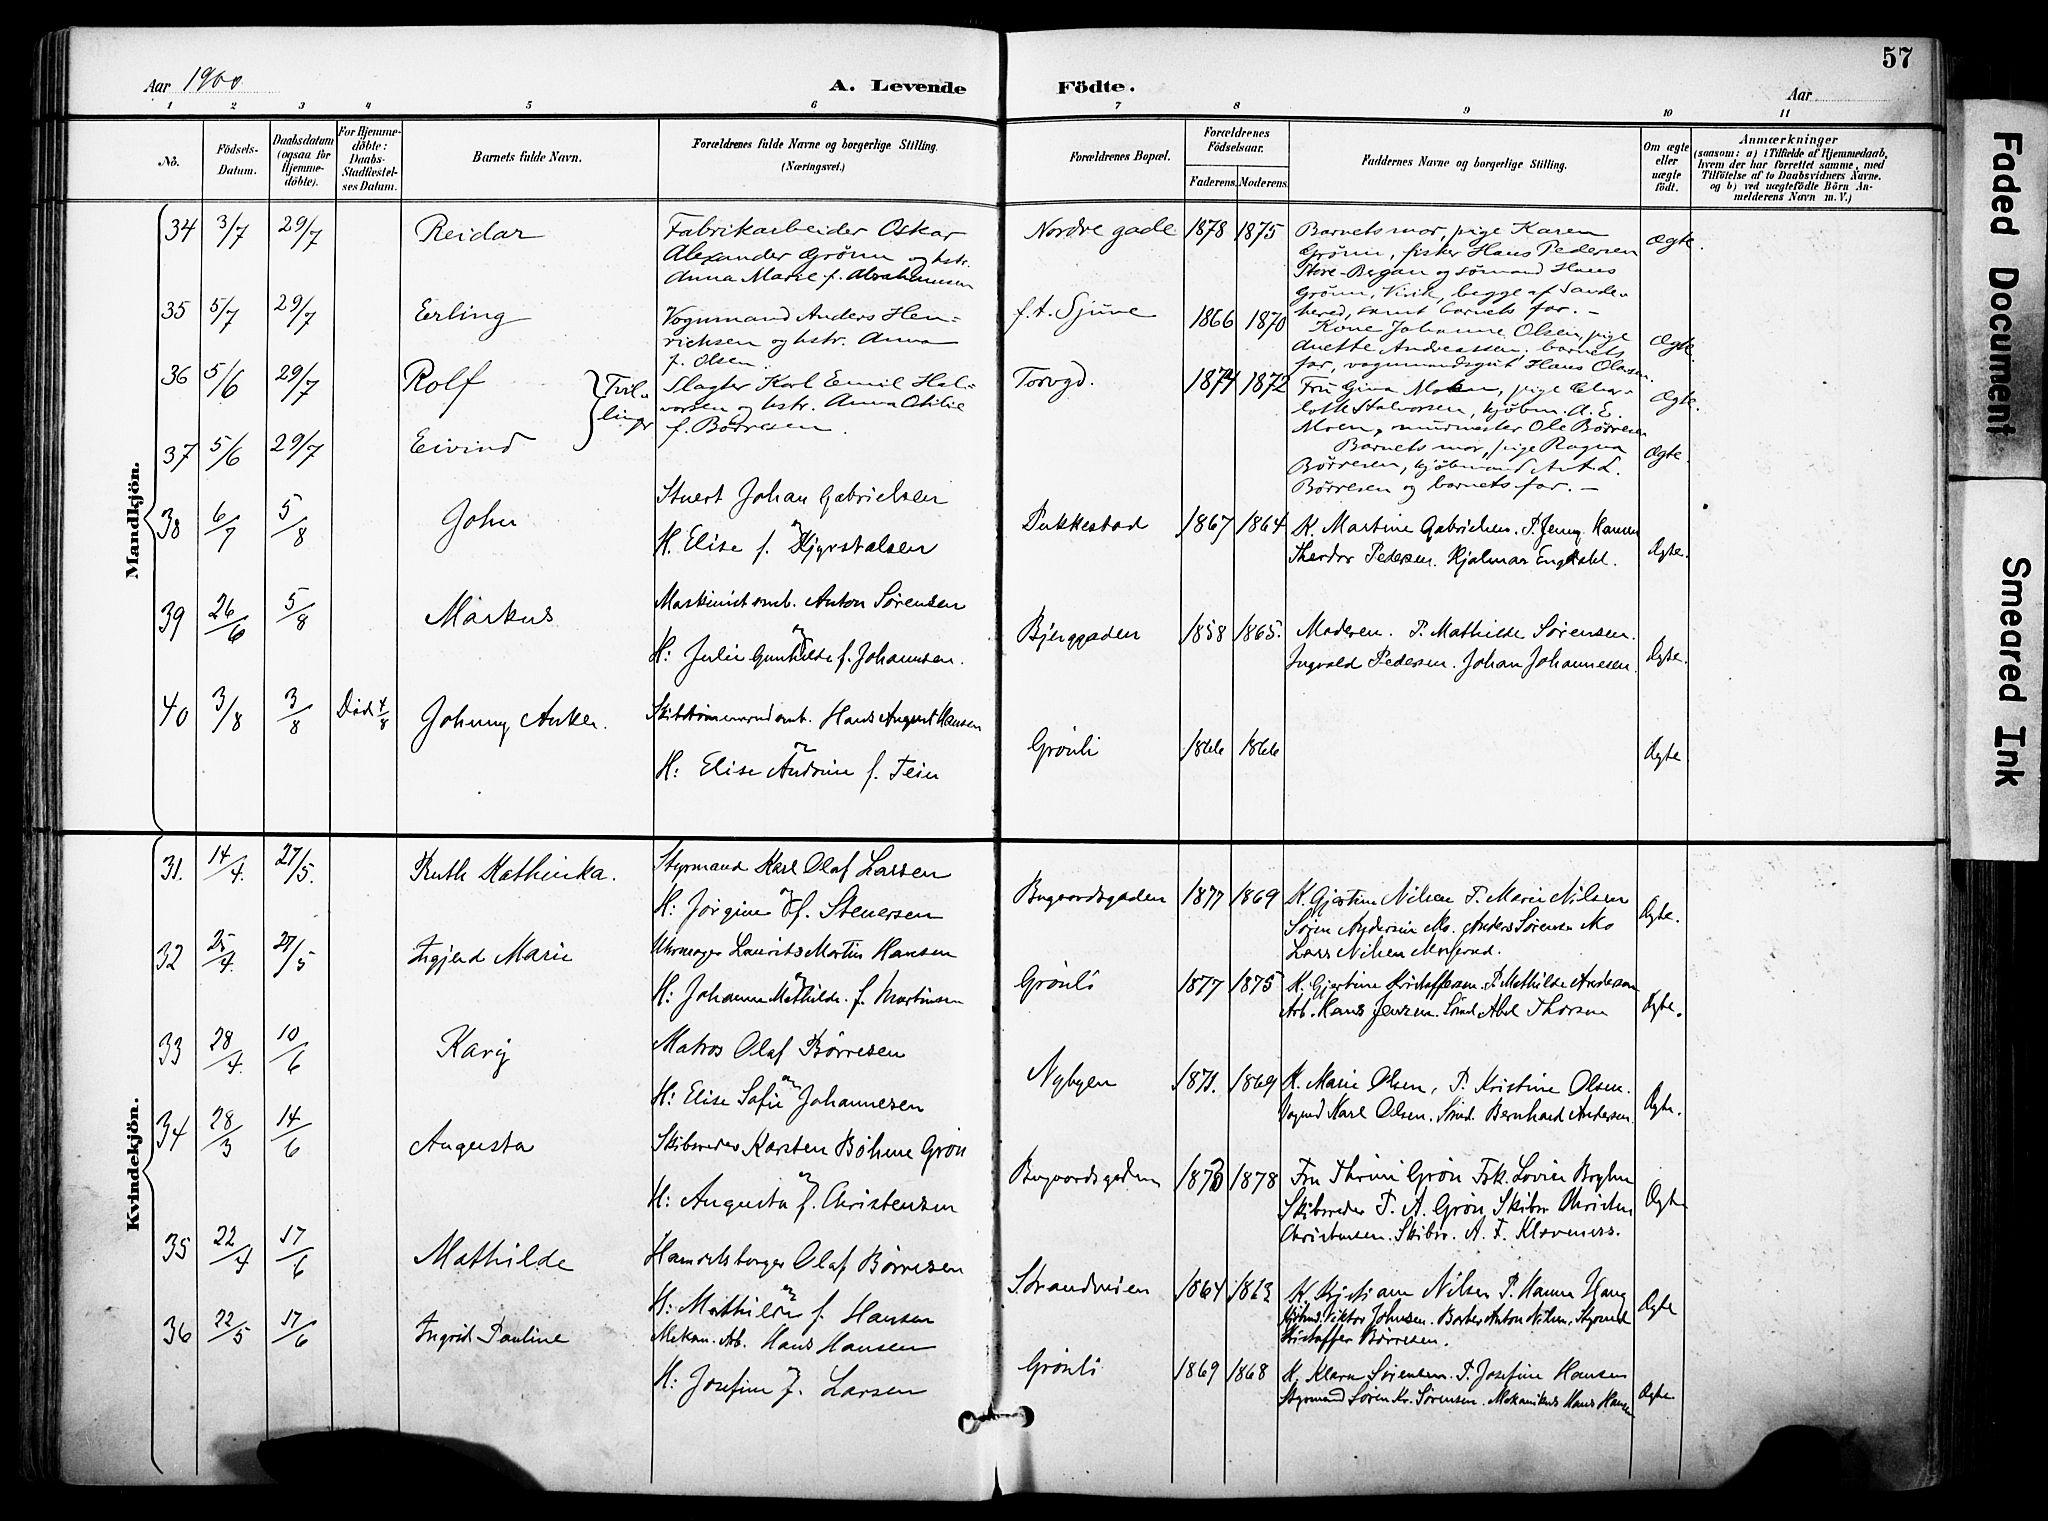 57
Aar 1900
A. Levende
Födte.
Aar
1 2 3 4 5 6 7 8 9 10 11
No.
Födsels-Datum.
Daabsdatum (ogsaa for Hjemme-döbte).
For Hjemme-döbte: Daabs-Stadfæstel-ses Datum.
Barnets fulde Navn.
Forældrenes fulde Navne og borgerlige Stilling.
(Næringsvei.)
Forældrenes Bopæl.
Forældrenes Födselsaar.
Faderens. Moderens.
Faddernes Navne og borgerlige Stilling.
Om ægte eller uægte födt.
Anmærkninger
(saasom: a) i Tilfælde af Hjemmedaab,
hvem der har forrettet samme, med
Tilföielse af to Daabsvidners Navne.
og b) ved uægtefödte Börn An-
melderens Navn m. V.)
Mandkjön.
34 3/7 29/7 Reidar
Fabrikarbeider Oskar
Alexander Grønn og hstr.
Anna Marie f. Abrahamsen
Nordre gade 1878 1875
Barnets mor, pige Karen
Grønn, fisker Hans Pedersen
Store-Bergan og sømand Hans
Grønn, Vivik, begge af Sande-
hered, samt barnets far. –
Ægte.
35 5/7 29/7 Erling
Vognmand Anders Hen-
richsen og hstr. Anna
f. Olsen.
f. A. Sjune 1866 1870
Kone Johanne Olsen, pige
Anette Andreassen, barnets
far, vognmandsgut Hans Olasen.
Ægte.
36 5/6 29/7 Rolf
Tvil-
linger
Slagter Karl Emil Hal-
vorsen og hstr. Anna Otilie
f. Børresen.
Torvgd. 1874 1872
Fru Gina Moen, pige Char-
lotte Halvorsen, kjøbm. A. E.
Moen, murmester Ole Børresen
Ægte.
37 5/6 29/7 Eivind
Barnets mor, pige Ragna
Børresen, kjøbmand Ant. L.
Børresen og barnets far. –
Ægte.
38 6/7 5/8 John
Stuert Johan Gabrielsen
og
H. Elise f.
Pukkestad 1867 1864
K. Martine Gabrielsen. P. Jenny Hansen
Theodor Pedersen. Hjalmar Engdahl.
Ægte.
39 26/6 5/8 Markus
Maskinist smb. Anton Sørensen
og
H: Julie Gunhilde f. Johannsen.
Bjerggaden 1858 1865.
Moderen. P. Mathilde Sørensen.
Ingvald Pedersen. Johan Johannesen.
Ægte.
40 3/8 3/8 Död 4/8 Johnny Anker.
Skibstømermand smb. Hans August Hansen
og
H: Elise Andrine f. Tein
Grönli 1866 1866
Ægte
Kvindekjön.
31. 14/4. 27/5. Ruth Kathinka.
Styrmand Karl Olaf Larsen
og
H: Jørgine f. Stenersen
Bugaardsgaden 1877 1869
K. Gjertine Nilsen P. Marie Nilsen
Søren Andersen Mo. Anders Sørensen Mo
Lars Nilsen
Ægte.
32 25/4. 27/5 Ingjerd Marie
Uhrmager Laurits Martin Hansen
og
H: Johanne Mathilde f. Martinsen
Grönli 1877 1875
K. Gjertine Kristoffersen. P. Mathilde Andersen
Arb. Hans Jensen. Sømd. Abel Thorsen
Ægte.
33 28/4. 10/6 Karij
Matros Olaf Børresen
og
H: Elise Sofie Johannesen
Nybyen 1871. 1869
K. Marie Olsen, P. Kristine Olsen.
Vognmd Karl Olsen. Sømd. Bernhard Andersen
Ægte.
34 28/3 14/6 Augusta
Skibsreder Karsten Bøhme Grøn
og
H: Augusta f. Christensen
Bugaardsgaden 1873 1878
Fru Thrine Grøn Frk. Lovise
Skibsreder P. A. Grøn, Skibsr Christen
Christensen. Skibsr. A. F. Klaveness.
Ægte
35 22/4 17/6 Mathilde
Handelsborger Olaf Børresen
og
H: Mathilde f. Hansen
Strandveien 1864 1863
K. Nilsen P. Hanna Haug
Viktor Johnsen. Barber Anton Nilsen, Styrmd
Kristoffer Børresen.
Ægte
36 22/5 17/6 Ingrid Pauline
Mekan. Arb. Hans Hansen
og
H: Josefine f. Larsen
Grönli 1869 1868
K. Klara Sørensen. P. Josefine Hansen
Styrmand Søren Kr. Sørensen. Mekanikus Hans Hansen
Ægte
Faded Document
Smeared Ink